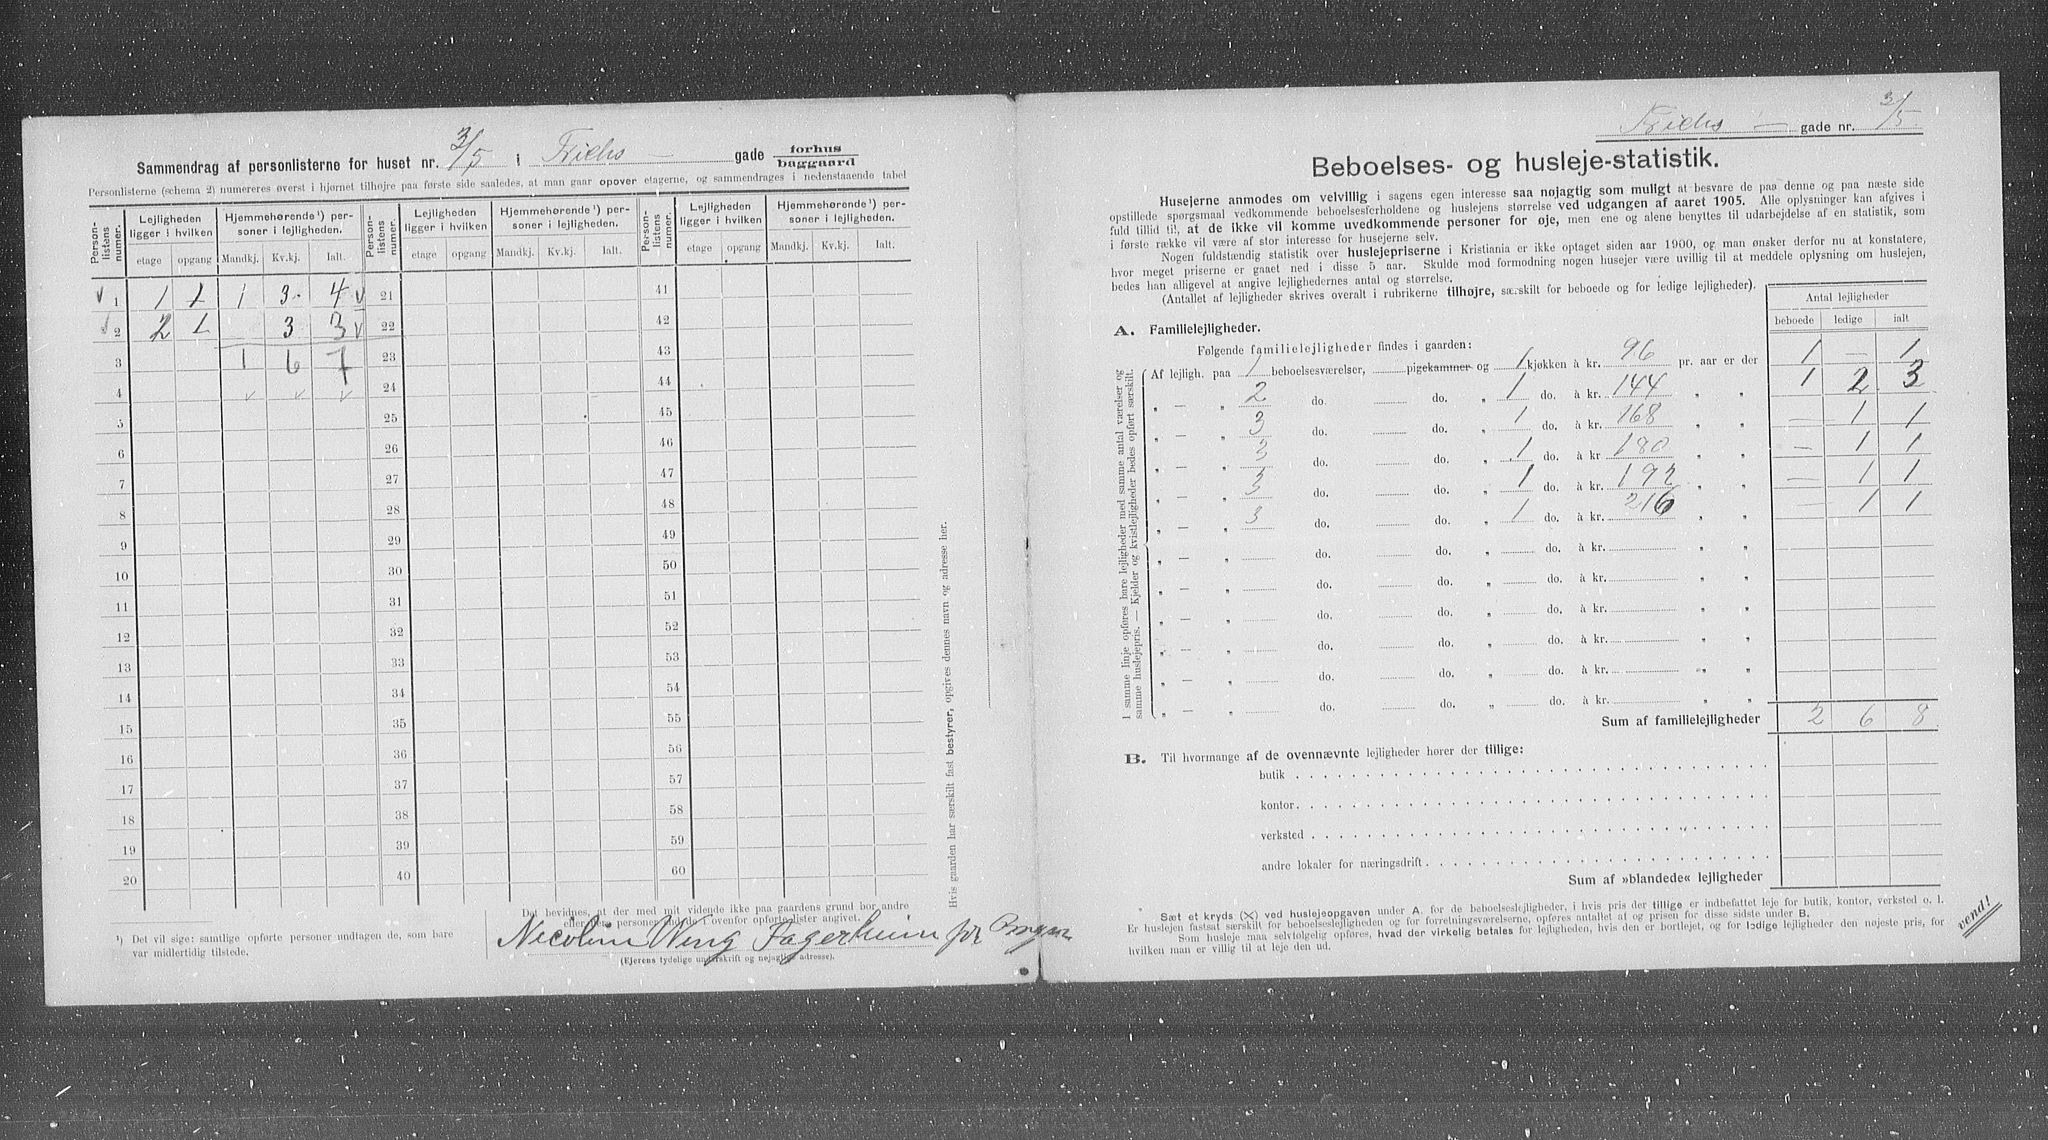 Sammendrag af personlisterne for huset nr. 3/5 i Frichs — gade forhus baggaard
Personlisterne (schema 2) numereres øverst i hjørnet tilhøjre paa første side saaledes, at man gaar opover etagerne, og sammendrages i nedenstaaende tabel
Person-listens numer. Lejligheden ligger i hvilken Hjemmehørende¹) personer i lejligheden. Person-listens numer. Lejligheden ligger i hvilken Hjemmehørende¹) personer i lejligheden. Person-listens numer. Lejligheden ligger i hvilken Hjemmehørende¹) personer i lejligheden.
etage opgang Mandkj. Kv.kj. Ialt. etage opgang Mandkj. Kv.kj. Ialt. etage opgang Mandkj. Kv.kj. Ialt.
√ 1 1 1 1 3 4 √ 21 41
√ 2 2 1 3 3 √ 22 42
3 1 6 7 23 43
4 √ √ √ 24 44
5 25 45
6 26 46
7 27 47
8 28 48
9 29 49
10 30 50
11 31 51
12 32 52
13 33 53
14 34 54
15 35 55
16 36 56
17 37 57
18 38 58
19 39 59
20 40 60
Hvis gaarden har særskilt fast bestyrer, opgives dennes navn og adresse her.
¹) Det vil sige: samtlige opførte personer undtagen de, som bare
var midlertidig tilstede.
Det bevidnes, at der med mit vidende ikke paa gaardens grund bor andre
eller flere personer end de i ovenfor opførte lister angivet.
Nicolin Wing Fagerheim for
(Ejerens tydelige underskrift og nøjagtige adresse).
Frichs — gade nr. 3/5.
Beboelses- og husleje-statistik.
Husejerne anmodes om velvillig i sagens egen interesse saa nøjagtig som muligt at besvare de paa denne og paa næste side
opstillede spørgsmaal vedkommende beboelsesforholdene og huslejens størrelse ved udgangen af aaret 1905. Alle oplysninger kan afgives i
fuld tillid til, at de ikke vil komme uvedkommende personer for øje, men ene og alene benyttes til udarbejdelse af en statistik, som
i første række vil være af stor interesse for husejerne selv.
Nogen fuldstændig statistik over huslejepriserne i Kristiania er ikke optaget siden aar 1900, og man ønsker derfor nu at konstatere,
hvor meget priserne er gaaet ned i disse 5 aar. Skulde mod formodning nogen husejer være uvillig til at meddele oplysning om huslejen,
bedes han alligevel at angive lejlighedernes antal og størrelse.
(Antallet af lejligheder skrives overalt i rubrikerne tilhøjre, særskilt for beboede og for ledige lejligheder).
Antal lejligheder
beboede ledige ialt
A. Familielejligheder.
Følgende familielejligheder findes i gaarden:
I samme linje opføres bare lejligheder med samme antal værelser og
samme huslejepris. — Kjelder og kvistlejligheder bedes opført særskilt.
Af lejligh. paa 1 beboelsesværelser, pigekammer og 1 kjøkken à kr. 96 pr. aar er der 1 — 1
„ — „ 2 do. do. „ 1 do. à kr. 144 „ „ 1 2 3
„ — „ 3 do. do. „ 1 do. à kr. 168 „ „ — 1 1
„ — „ 3 do. do. „ 1 do. à kr 180 „ „ — 1 1
„ — „ 3 do. do. „ 1 do. à kr. 192 „ „ — 1 1
„ — „ 3 do. do. „ 1 do. à kr. 216 „ „ — 1 1
„ — „ do. do. „ do. à kr. „ „
„ — „ do. do. „ do. à kr. „ „
„ — „ do. do. „ do. à kr. „ „
„ — „ do. do. „ do. à kr. „ „
„ — „ do. do. „ do. à kr. „ „
„ — „ do. do. „ do. à kr. „ „
Sum af familielejligheder 2 6 8
B. Til hvormange af de ovennævnte lejligheder hører der tillige:
butik
kontor
verksted
andre lokaler for næringsdrift
Sum af »blandede« lejligheder
Sæt et kryds (X) ved huslejeopgaven under A. for de beboelseslejligheder, i hvis pris der tillige er indbefattet leje for butik, kontor, verksted o. l.
Er huslejen fastsat særskilt for beboelseslejligheden og for forretningsværelserne, opføres antallet at og prisen for disse sidste under B.
Som husleje maa selvtolgelig opføres, hvad der virkelig betales for lejligheden, hvis den er bortlejet, og for ledige lejligheder den nøjeste pris, for
hvilken man er villig til at leje den ud.
vend!